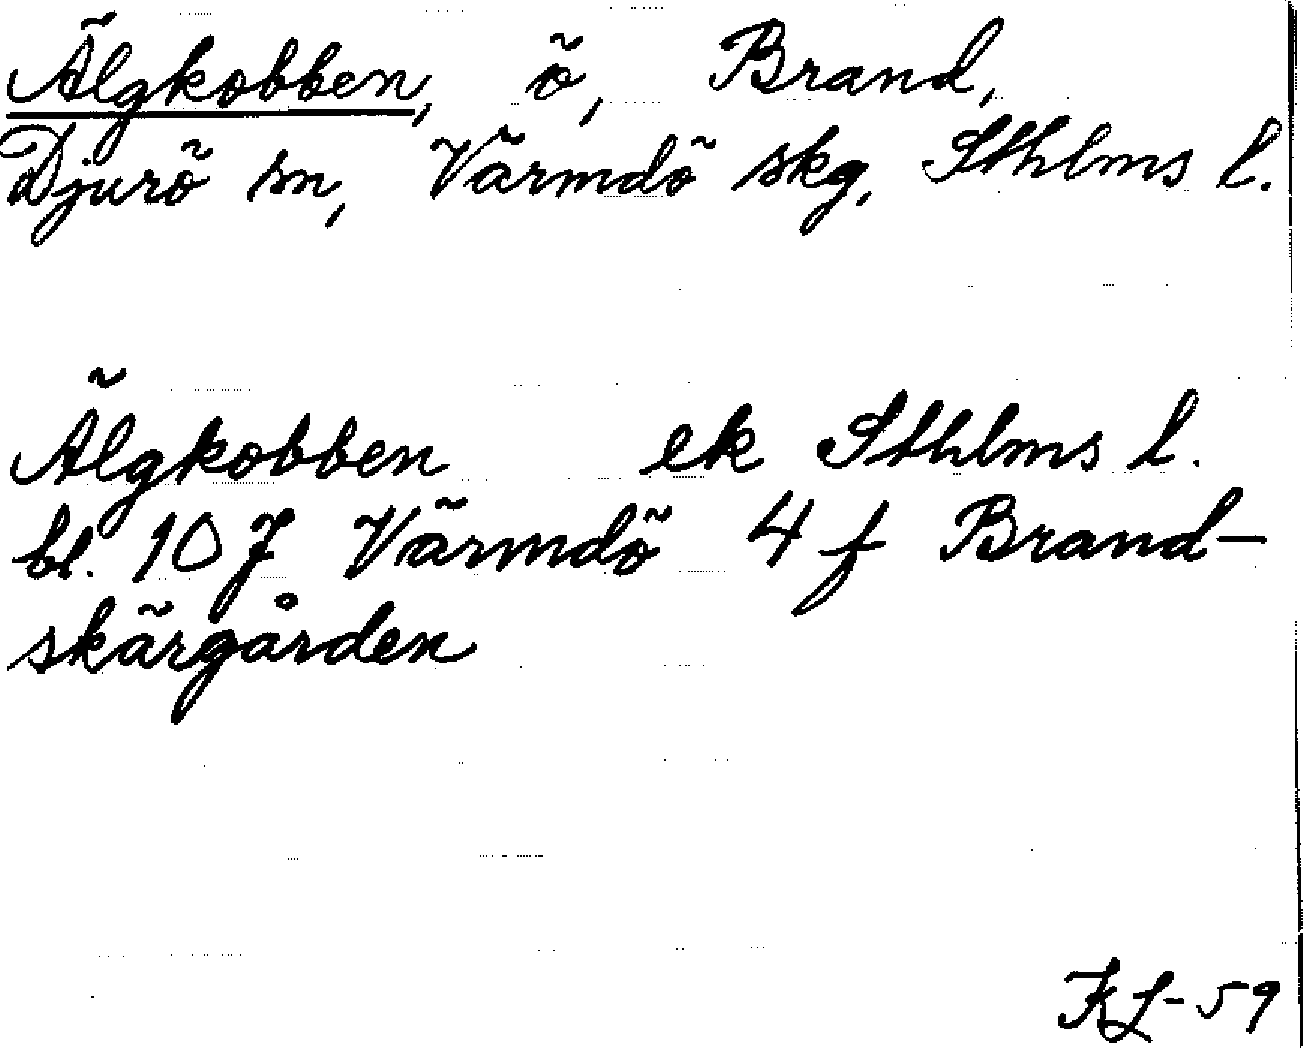 Älgkobben, ö, Brand,
Djurö sn, Värmdö skg, Sthlms l.
Älgkobben ek Sthlms l.
bl. 10 J Värmdö 4 f Brand-
skärgården
KL-59